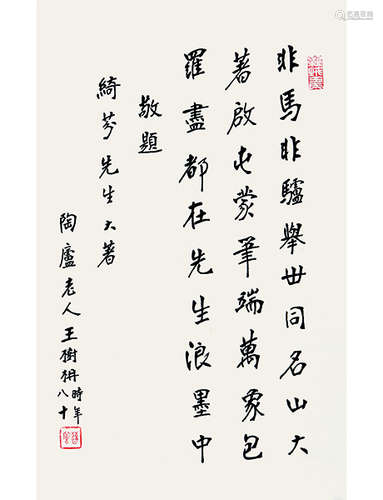 非馬非驢舉世同名山大
著啟屯蒙筆端萬象包
羅盡都在先生浪墨中
敬題
綺芬先生大著
陶廬老人王樹枏時年八十